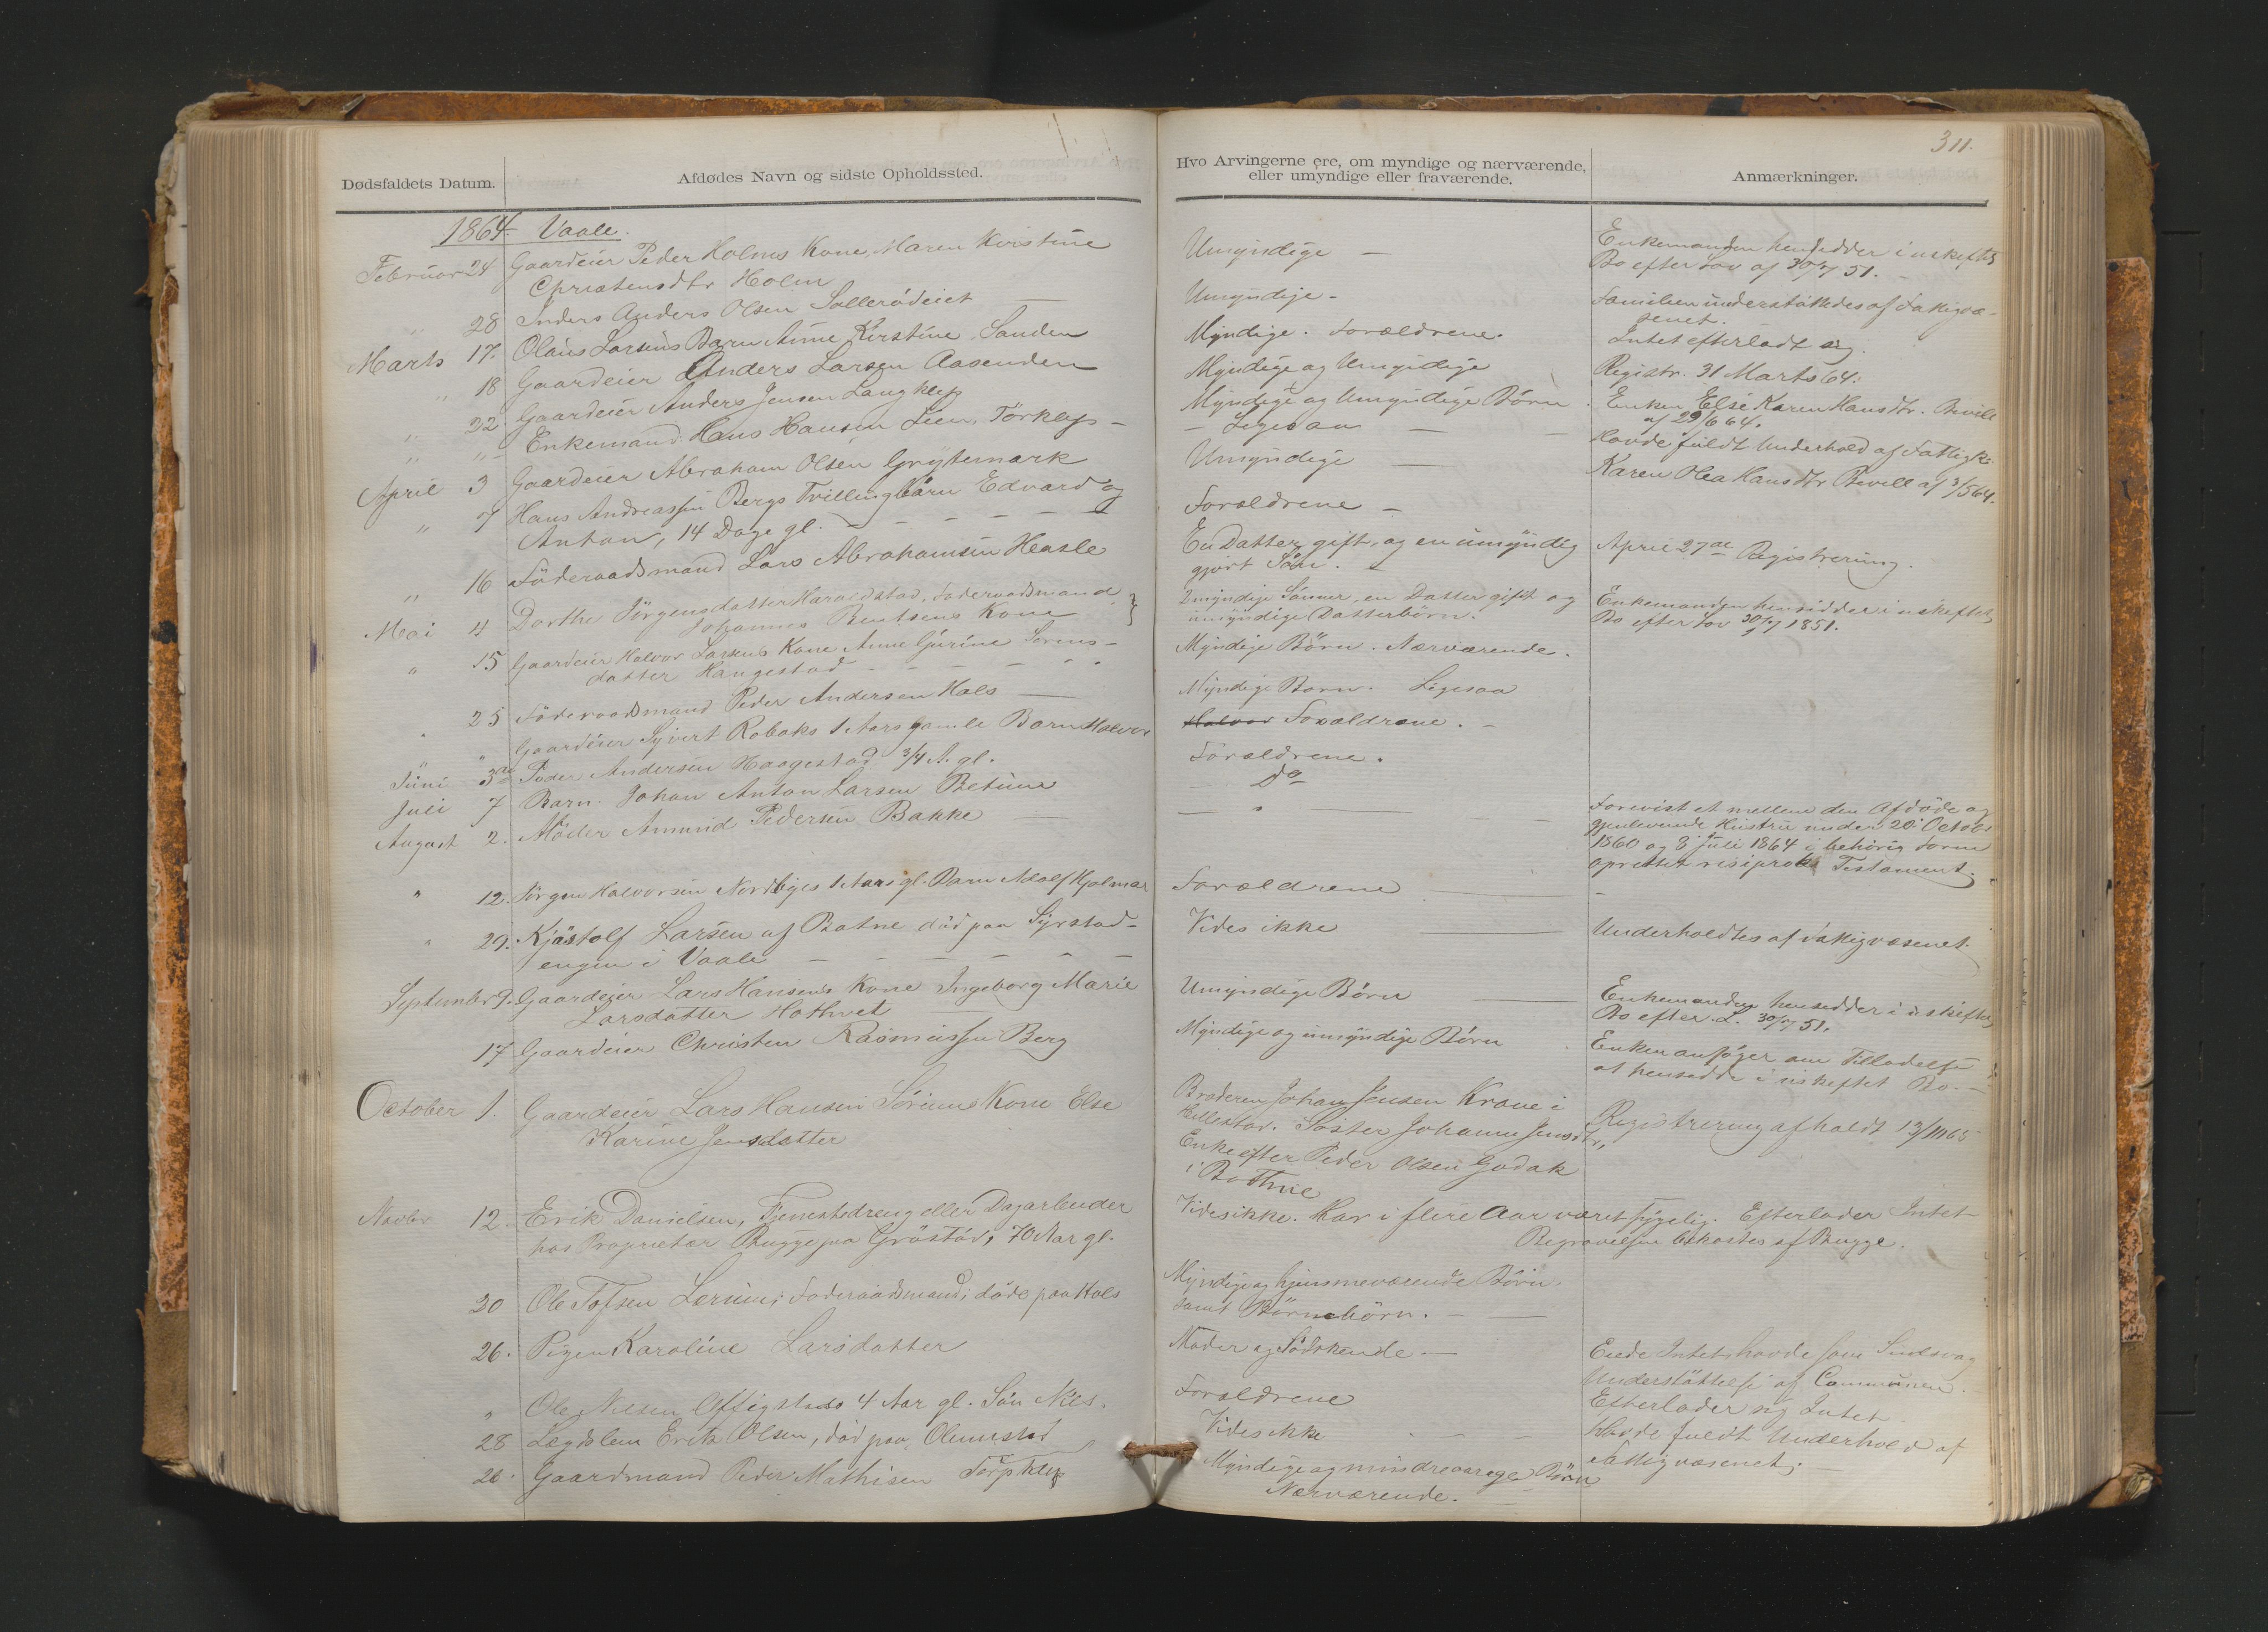 311.
Dødsfaldets Datum.
Afdødes Navn og sidste Opholdssted.
Hvo Arvingerne ere, om myndige og nærværende,
eller umyndige eller fraværende.
Anmærkninger.
1864 Vaale.
Februar 24 Gaardeier Peder Holms Kone, Maren Kirstine
Christensdtr Holm
Umyndige —
Enkemanden hensidder i uskiftet
Bo efter Lov af 30/7 51.
" 28 Inders Anders Olsen Sollerödeiet —
Umyndige -
Familien understöttedes af Fattigvæ-
senet.
Marts 17. Olaus Larsens Barn Anne Kirstine, Sanden
Myndige. Forældrene.
Intet efterladt sig.
" 18 Gaardeier Anders Larsen Aasenden
Myndige og Umyndige
Registr. 31 Marts 64.
" 22. Gaardeier Anders Jensen Langklep
Myndige og Umyndige Börn
Enken Else Karen Hansdtr. Bevill
af 29/6 64.
" " Enkemand Hans Hansen Lien, Törklep -
— Ligesaa —
Havde fuldt Underhold af Fattigk.
April 3 Gaardeier Abraham Olsen Grytemark
Umyndige —
Karen Olea Hansdtr Bevill af 3/5 64.
" 7 Hans Andreassen Bergs Tvillingbarn Edvard og
Anton, 14 Dage gl. - - - - -
Forældrene -
" 16 Föderaadsmand Lars Abrahamsen Heasle
En Datter, gift, og en umyndig
gjort Sön. -
April 27de Registrering.
Mai 4 Dorthe Jörgensdatter Haraldstad, Föderaadsmand
Johannes Bentsens Kone
2 myndige Sönner, en Datter gift og
umyndige Datterbörn.
Enkemanden hensidder i uskiftet
Bo efter Lov 30/7 1851.
" 15 Gaardeier Halvor Larsens Kone Anne Gurine Sörens-
datter Hangestad - - - - -
Myndige Börn. Nærværende.
" 25 Föderaadsmand Peder Andersen Hals —
Myndige Börn. Ligesaa
" " Gaardeier Syvert Robaks 1 Aars gamle Barn Halvor
Halvor Forældrene. -
Juni 3de Peder Andersen Haagestad 3/4 A. gl.
Forældrene.
Juli 7 Barn. Johan Anton Larsen Betüne
— Do
August 2. Möller Amund Pedersen Bakke —
— " —
Forevist et mellem den Afdöde og
gjenlevende Hustru under 20 October
1860 og 8 Juli 1864 i behörig Form
oprettet resiprokt Testament.
" 12. Jörgen Halvorsen Nordbyes 1 Aars gl. Barn Adolf Hjalmar
Forældrene —
" 29. Kjöstolf Larsen af Botne död paa Syrstad-
engen i Vaale - - - - -
Vides ikke —
Underholdtes af Fattigvæsenet.
September 9. Gaardeier Lars Hansens Kone Ingeborg Marie
Larsdatter Hothvet —
Umyndige Börn —
Enkemanden hensidder i uskiftet
Bo efter L. 30/7 51.
17 Gaardeier Christen Rasmussen Berg
Myndige og umyndige Börn
Enken ansöger om Tilladelse
at hensidde i uskiftet Bo. -
October 1. Gaardeier Lars Hansen Sörums Kone Else
Karine Jensdatter
Broderen Johan Jensen Krane i
Söster Johanne Jensdtr,
Enke efter Peder Olsen Godak
i Bothne
Registrering afholdt 13/1 1865
Novbr 12. Erik Danielsen, Tjenestedreng eller Dagarbeider
hos Proprietær Bugge paa Gröstöd, 70 Aar gl.
Vides ikke. Har i flere Aar været sygelig. Efterlader Intet
Begravelsen bekostes af Bugge.
20 Ole Tofsen Lerum, Föderaadsmand, döde paa Hals
Myndige og hjemmeværende Börn.
samt Börnebörn. —
26. Pigen Karoline Larsdatter
Moder og Södskende —
Eiede Intet, havde som Sindsvag
Understöttelse af Communen.
" Ole Nilsen Affigstads 4 Aar gl. Sön Nils.
Forældrene
Efterlader sig Intet
28 Lægdslem Erik Olsen, död paa Olumstad
Vides ikke - - -
Havde fuldt Underhold af
Fattigvæsenet.
28. Gaardmand Peder Mathisen Törpklep
Myndige og mindreaarige Börn
Nærværende.